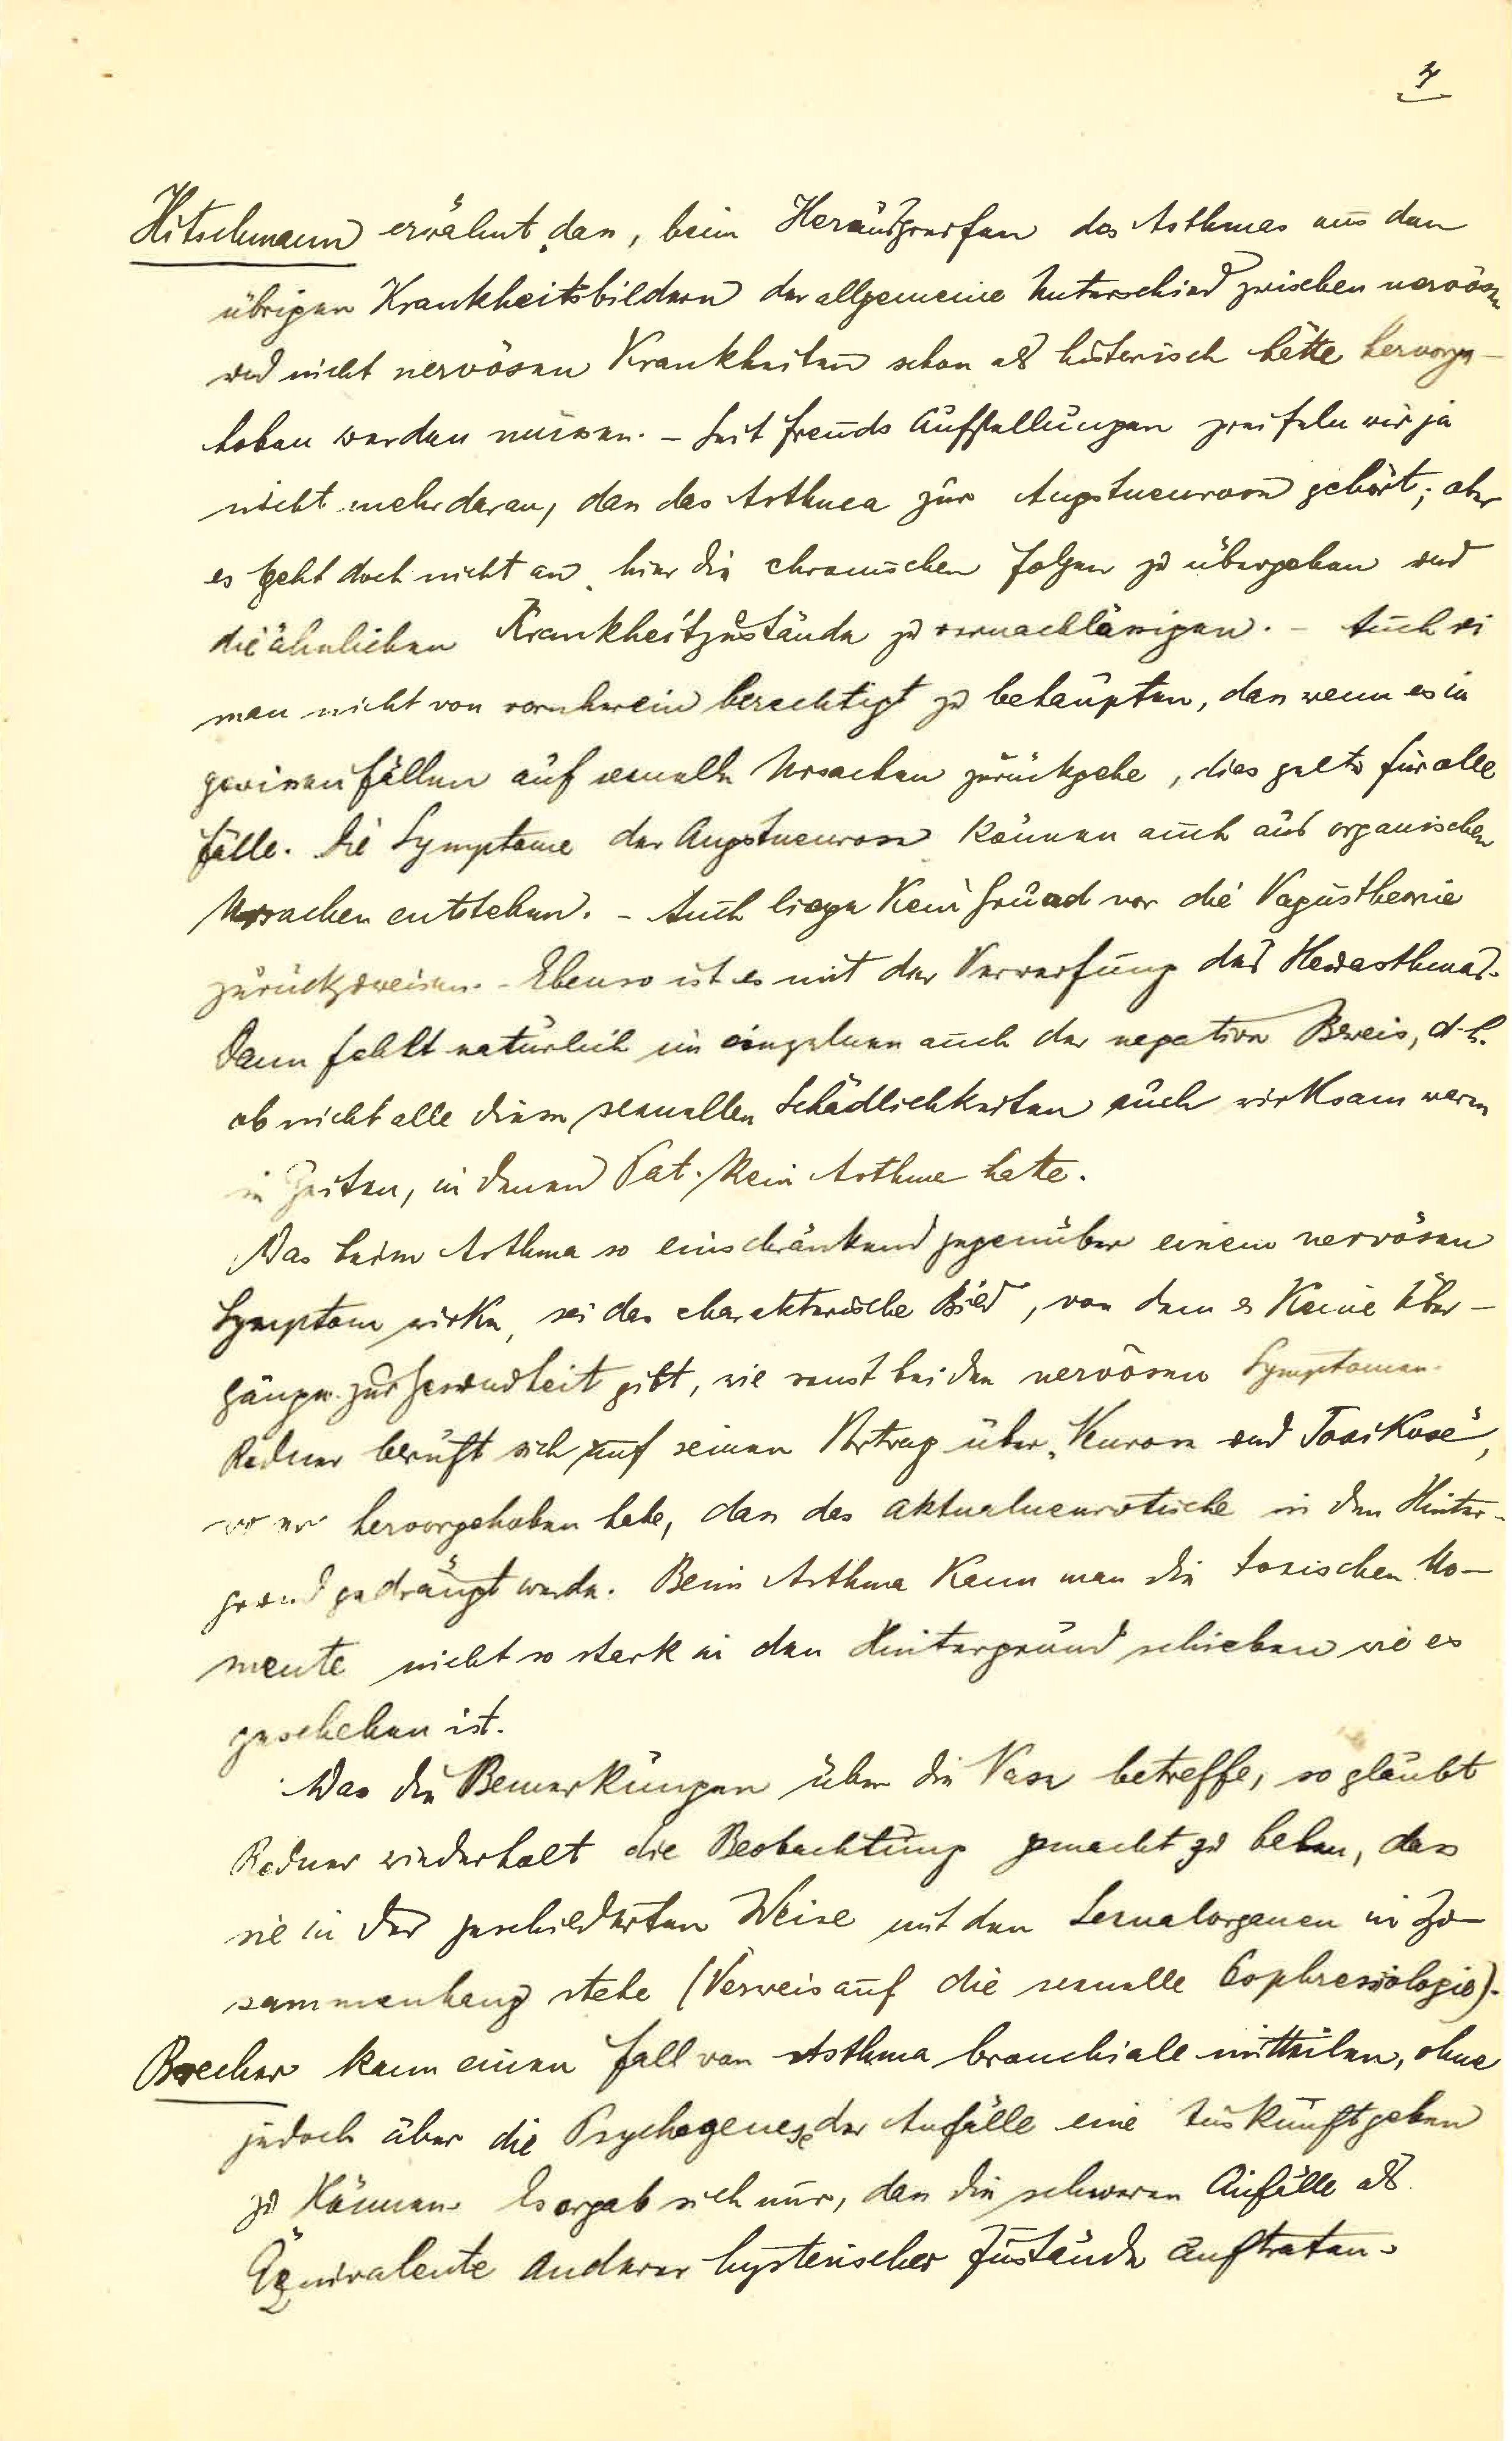 4
Hitschmann erwähnt, dass, beim Herausgreifen des Asthmas aus den
übrigen Krankheitsbildern der allgemeine Unterschied zwischen nervösen
und nicht nervösen Krankheiten schon als historisch hätte hervorge-
hoben werden müssen. – Seit Freuds Aufstellungen zweifeln wir ja
nicht mehr daran, dass das Asthma zur Angstneurose gehört; aber
es geht doch nicht an, hier die chronischen Folgen zu übergehen und
die ähnlichen Krankheitzustände zu vernachlässigen. – Auch sei
man nicht von vornherein berechtigt zu behaupten, dass wenn es in
gewissen Fällen auf sexuelle Ursachen zurückgehe, dies gelte für alle
Fälle. Die Symptome der Angstneurose können auch aus organischen
Ursachen entstehen. – Auch liege kein Grund vor die Vagustheorie
zurückzuweisen. – Ebenso ist es mit der Verwerfung des Herzasthmas.
Dann fehlt natürlich im einzelnen auch der negative Beweis, d.h.
ob nicht alle diese sexuellen Schädlichkeiten auch wirksam waren
in Zeiten, in denen Pat. kein Asthma hatte.
Was beim Asthma so einschränkend gegenüber einem nervösen
Symptom wirke, sei das charakterische Bild, von dem es keine Über-
gänge zur Gesundheit gibt, wie sonst bei den nervösen Symptomen.
Redner beruft sich auf seinen Vortrag über „Neurose und Toxikose“,
wo er hervorgehoben habe, dass das aktualneurotische in den Hinter-
grund gedrängt werde. Beim Asthma kann man die toxischen Mo-
mente nicht so stark in den Hintergrund schieben wie es
geschehen ist.
Was die Bemerkungen über die Nase betreffe, so glaubt
Redner wiederholt die Beobachtung gemacht zu haben, dass
sie in der geschilderten Weise mit den Sexualorganen in Zu-
sammenhang stehe (Verweis auf die sexuelle Osphresiologie).
Brecher kann einen Fall von Asthma bronchiale mitteilen, ohne
jedoch über die Psychogenese der Anfälle eine Auskunft geben
zu können. Es ergab sich nur, dass die schweren Anfälle als
Äquivalente anderer hysterischer Zustände auftraten.